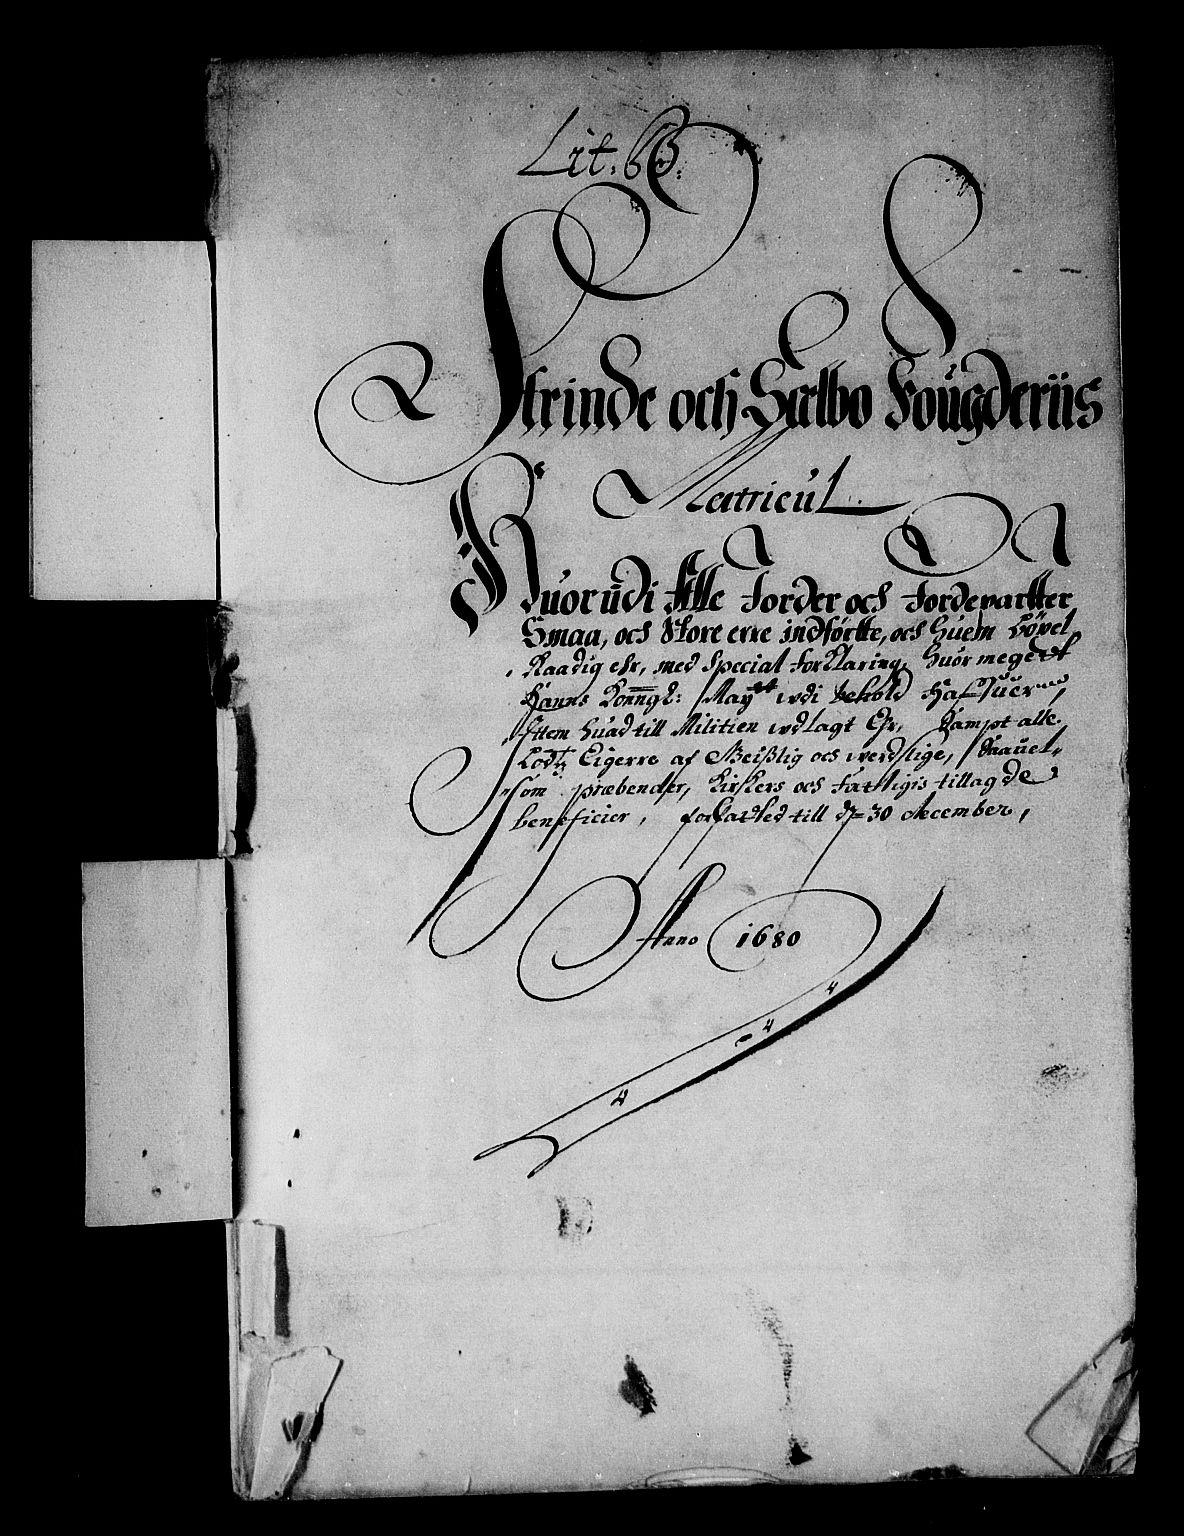 Lit. B:
Strinde och Sælbo Fougderiis
Matricul.
Huorudi Alle Jorder och Jordeparter
Smaa, och Store erre indførte, och huem Bøxel
Raadig ehr, med Special forklaring, huor meget
Hanns Konngl: May udi behold hafuer,
Item huad till Militien udlagt Ehr, Sampt alle
Eigerre af Geistlig och werdslige, saauel
som præbender, Kirkers och Fattigis tillagde
beneficier, forfatted till 30 december,
Anno 1680
4
4
4